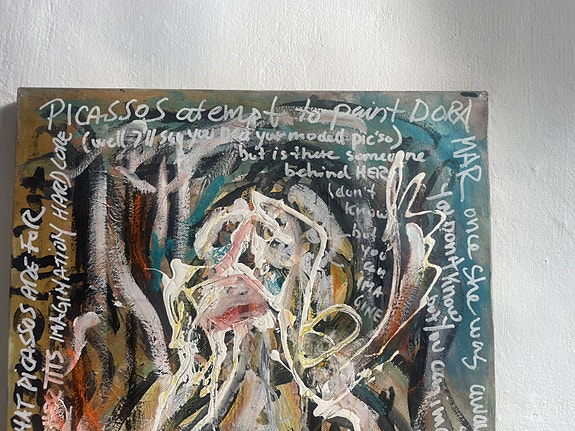 PICASSOS atempt to paint DORA
MAR once she was
(well I'll say you had your model pic'so)
but is there someone
behind HER
(don't
know
but
you
can
IMA
GINE
you don't know
but you can
HAT PICASSOS ARE FOR
THIS IMAGINATION HARD CORE